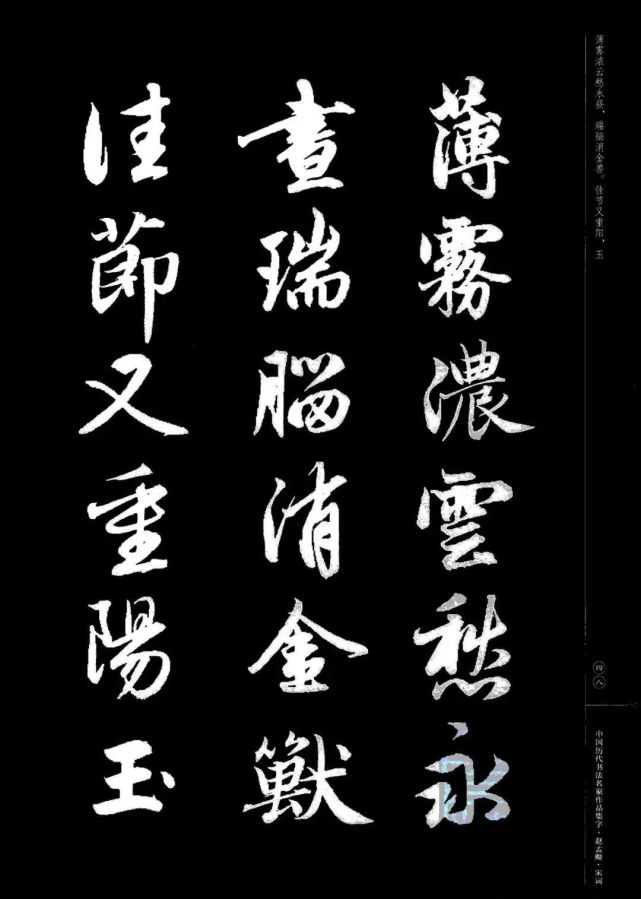 薄霧濃雲愁永
晝瑞腦消金獸
佳節又重陽玉
薄雾浓云愁永昼，瑞脑消金兽。佳节又重阳，玉
四八
中国历代书法名家作品集字·赵孟頫·宋词